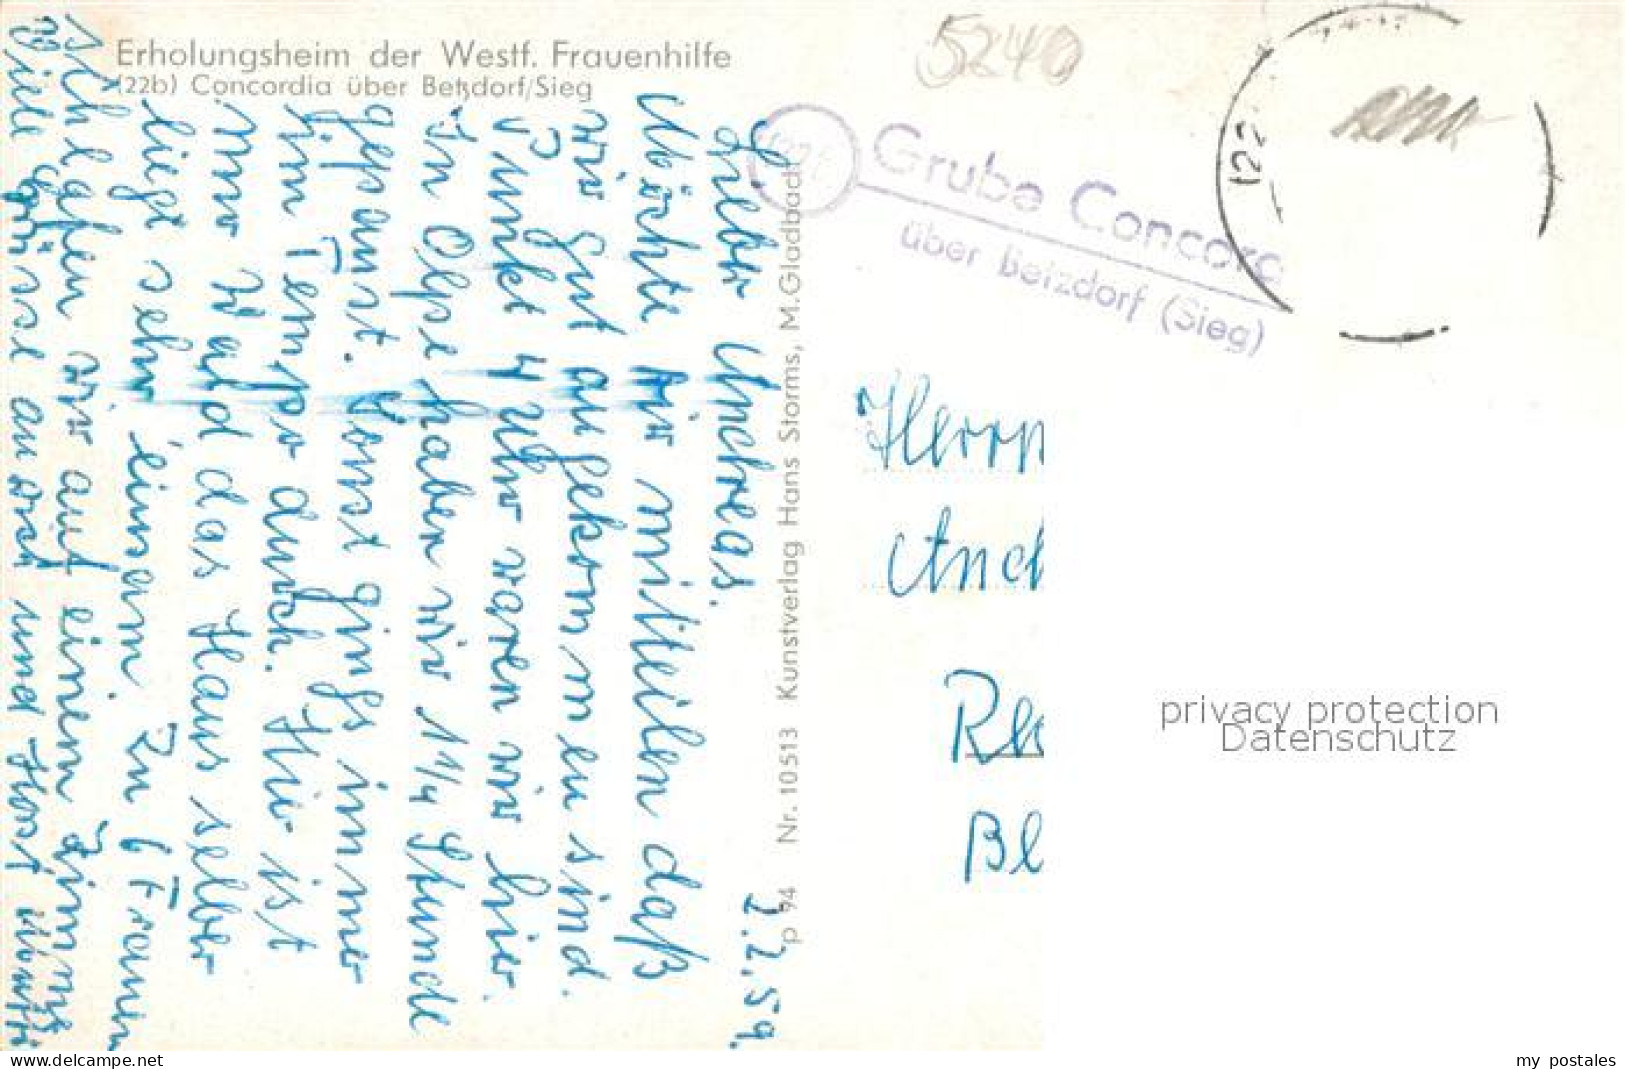 Erholungsheim der Westf. Frauenhilfe
(22b) Concordia über Betzdorf/Sieg
5240
Grube Concord
über Betzdorf (Sieg)
(22
2.2.59.
Lieber Andreas.
Möchte dir mitteilen daß
wir gut angekommen sind.
Punkt 4 Uhr waren wir hier.
In Olpe haben wir 1 1/4 Stunde
gepaust. Sonst gings immer
im Tempo durch. Hier ist
nur Wald das Haus selber
liegt sehr einsam. Zu 6 Frauen
schlafen wir auf einem Zimmer
Viele Grüsse an dich und Horst Mutti
p 94 Nr. 10513 Kunstverlag Hans Storms, M.Gladbach
Herrn
And
Rh
Bl
privacy protection
Datenschutz
www.delcampe.net
my_postales